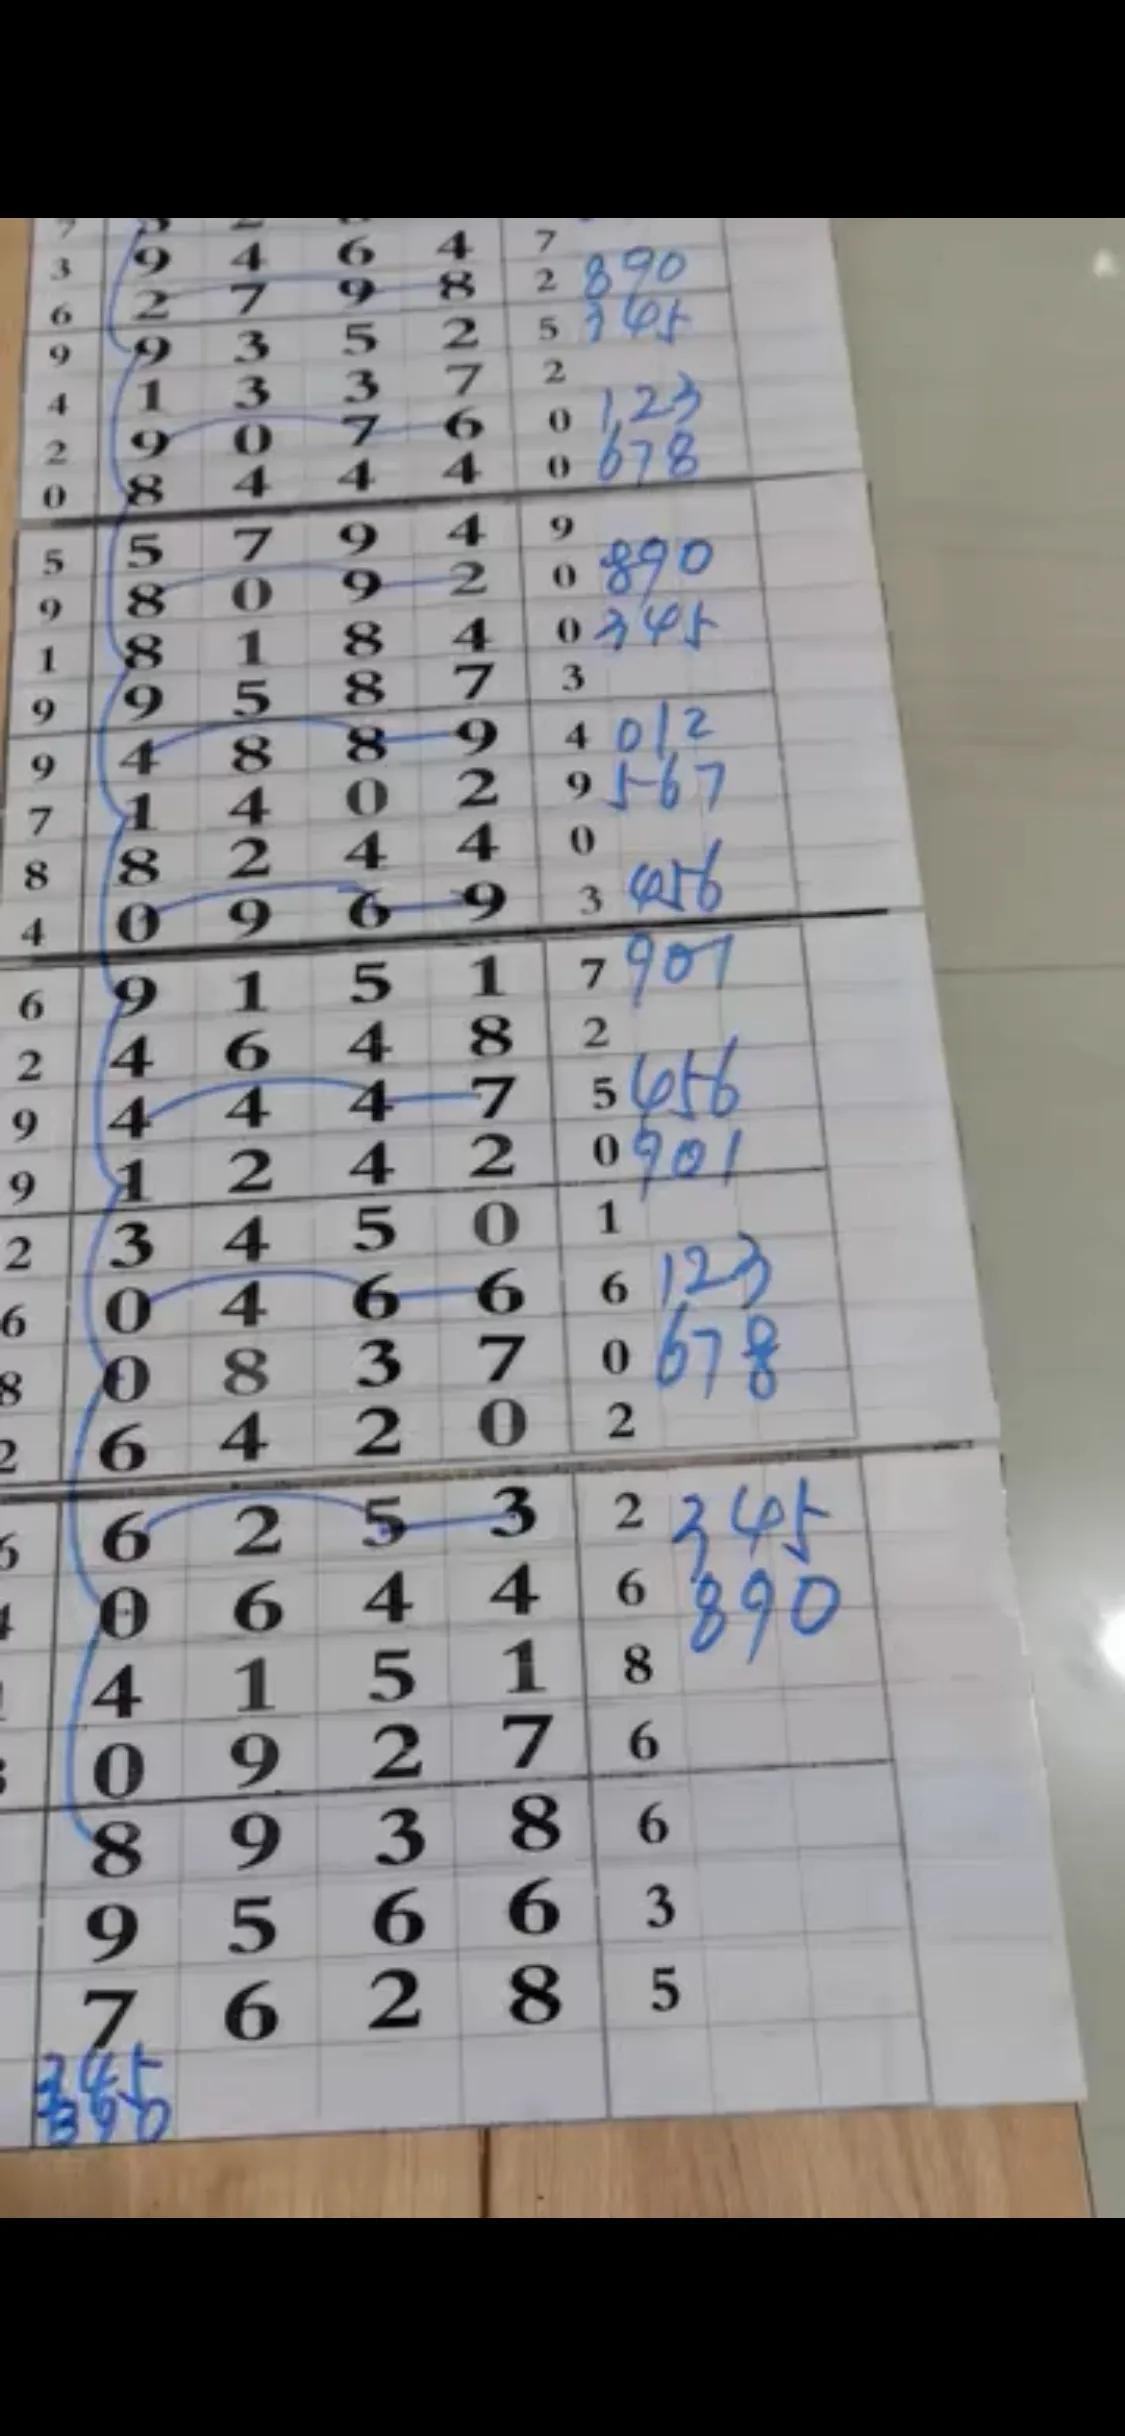 3 9 4 6 4 7
6 2 7 9 8 2 890
9 9 3 5 2 5 345
4 1 3 3 7 2
2 9 0 7 6 0 123
0 8 4 4 4 0 678
5 5 7 9 4 9
9 8 0 9 2 0 890
1 8 1 8 4 0 345
9 9 5 8 7 3
9 4 8 8 9 4 012
7 1 4 0 2 9 567
8 8 2 4 4 0
4 0 9 6 9 3 456
6 9 1 5 1 7 901
2 4 6 4 8 2
9 4 4 4 7 5 456
9 1 2 4 2 0 901
2 3 4 5 0 1
6 0 4 6 6 6 123
8 0 8 3 7 0 678
2 6 4 2 0 2
6 2 5 3 2 345
0 6 4 4 6 890
4 1 5 1 8
0 9 2 7 6
8 9 3 8 6
9 5 6 6 3
7 6 2 8 5
345
890